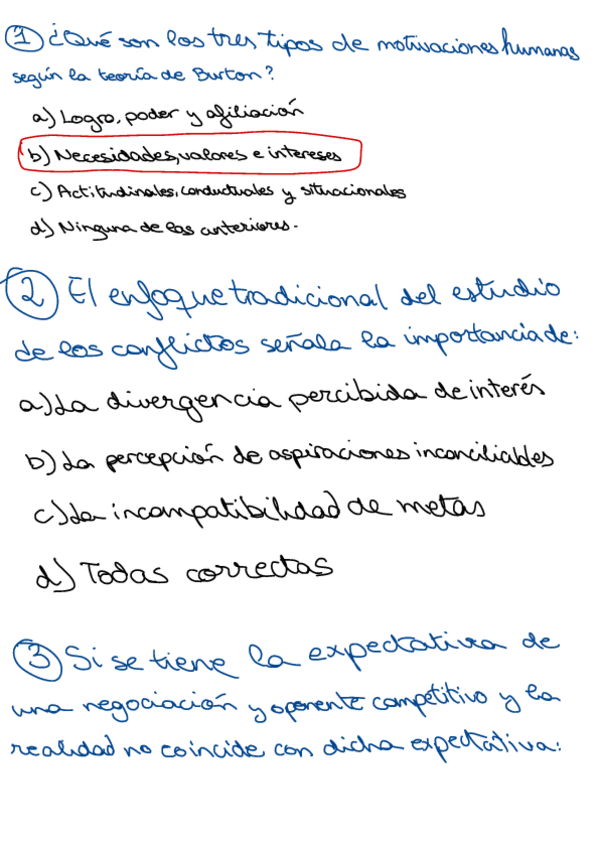 1 ¿Qué son los tres tipos de motivaciones humanas
según la teoría de Burton?
a) Logro, poder y afiliación
b) Necesidades, valores e intereses
c) Actitudinales, conductuales y situacionales
d) Ninguna de las anteriores.
2 El enfoque tradicional del estudio
de los conflictos señala la importancia de:
a) La divergencia percibida de interés
b) La percepción de aspiraciones inconciliables
c) La incompatibilidad de metas
d) Todas correctas
3 Si se tiene la expectativa de
una negociación y oponente competitivo y la
realidad no coincide con dicha expectativa: